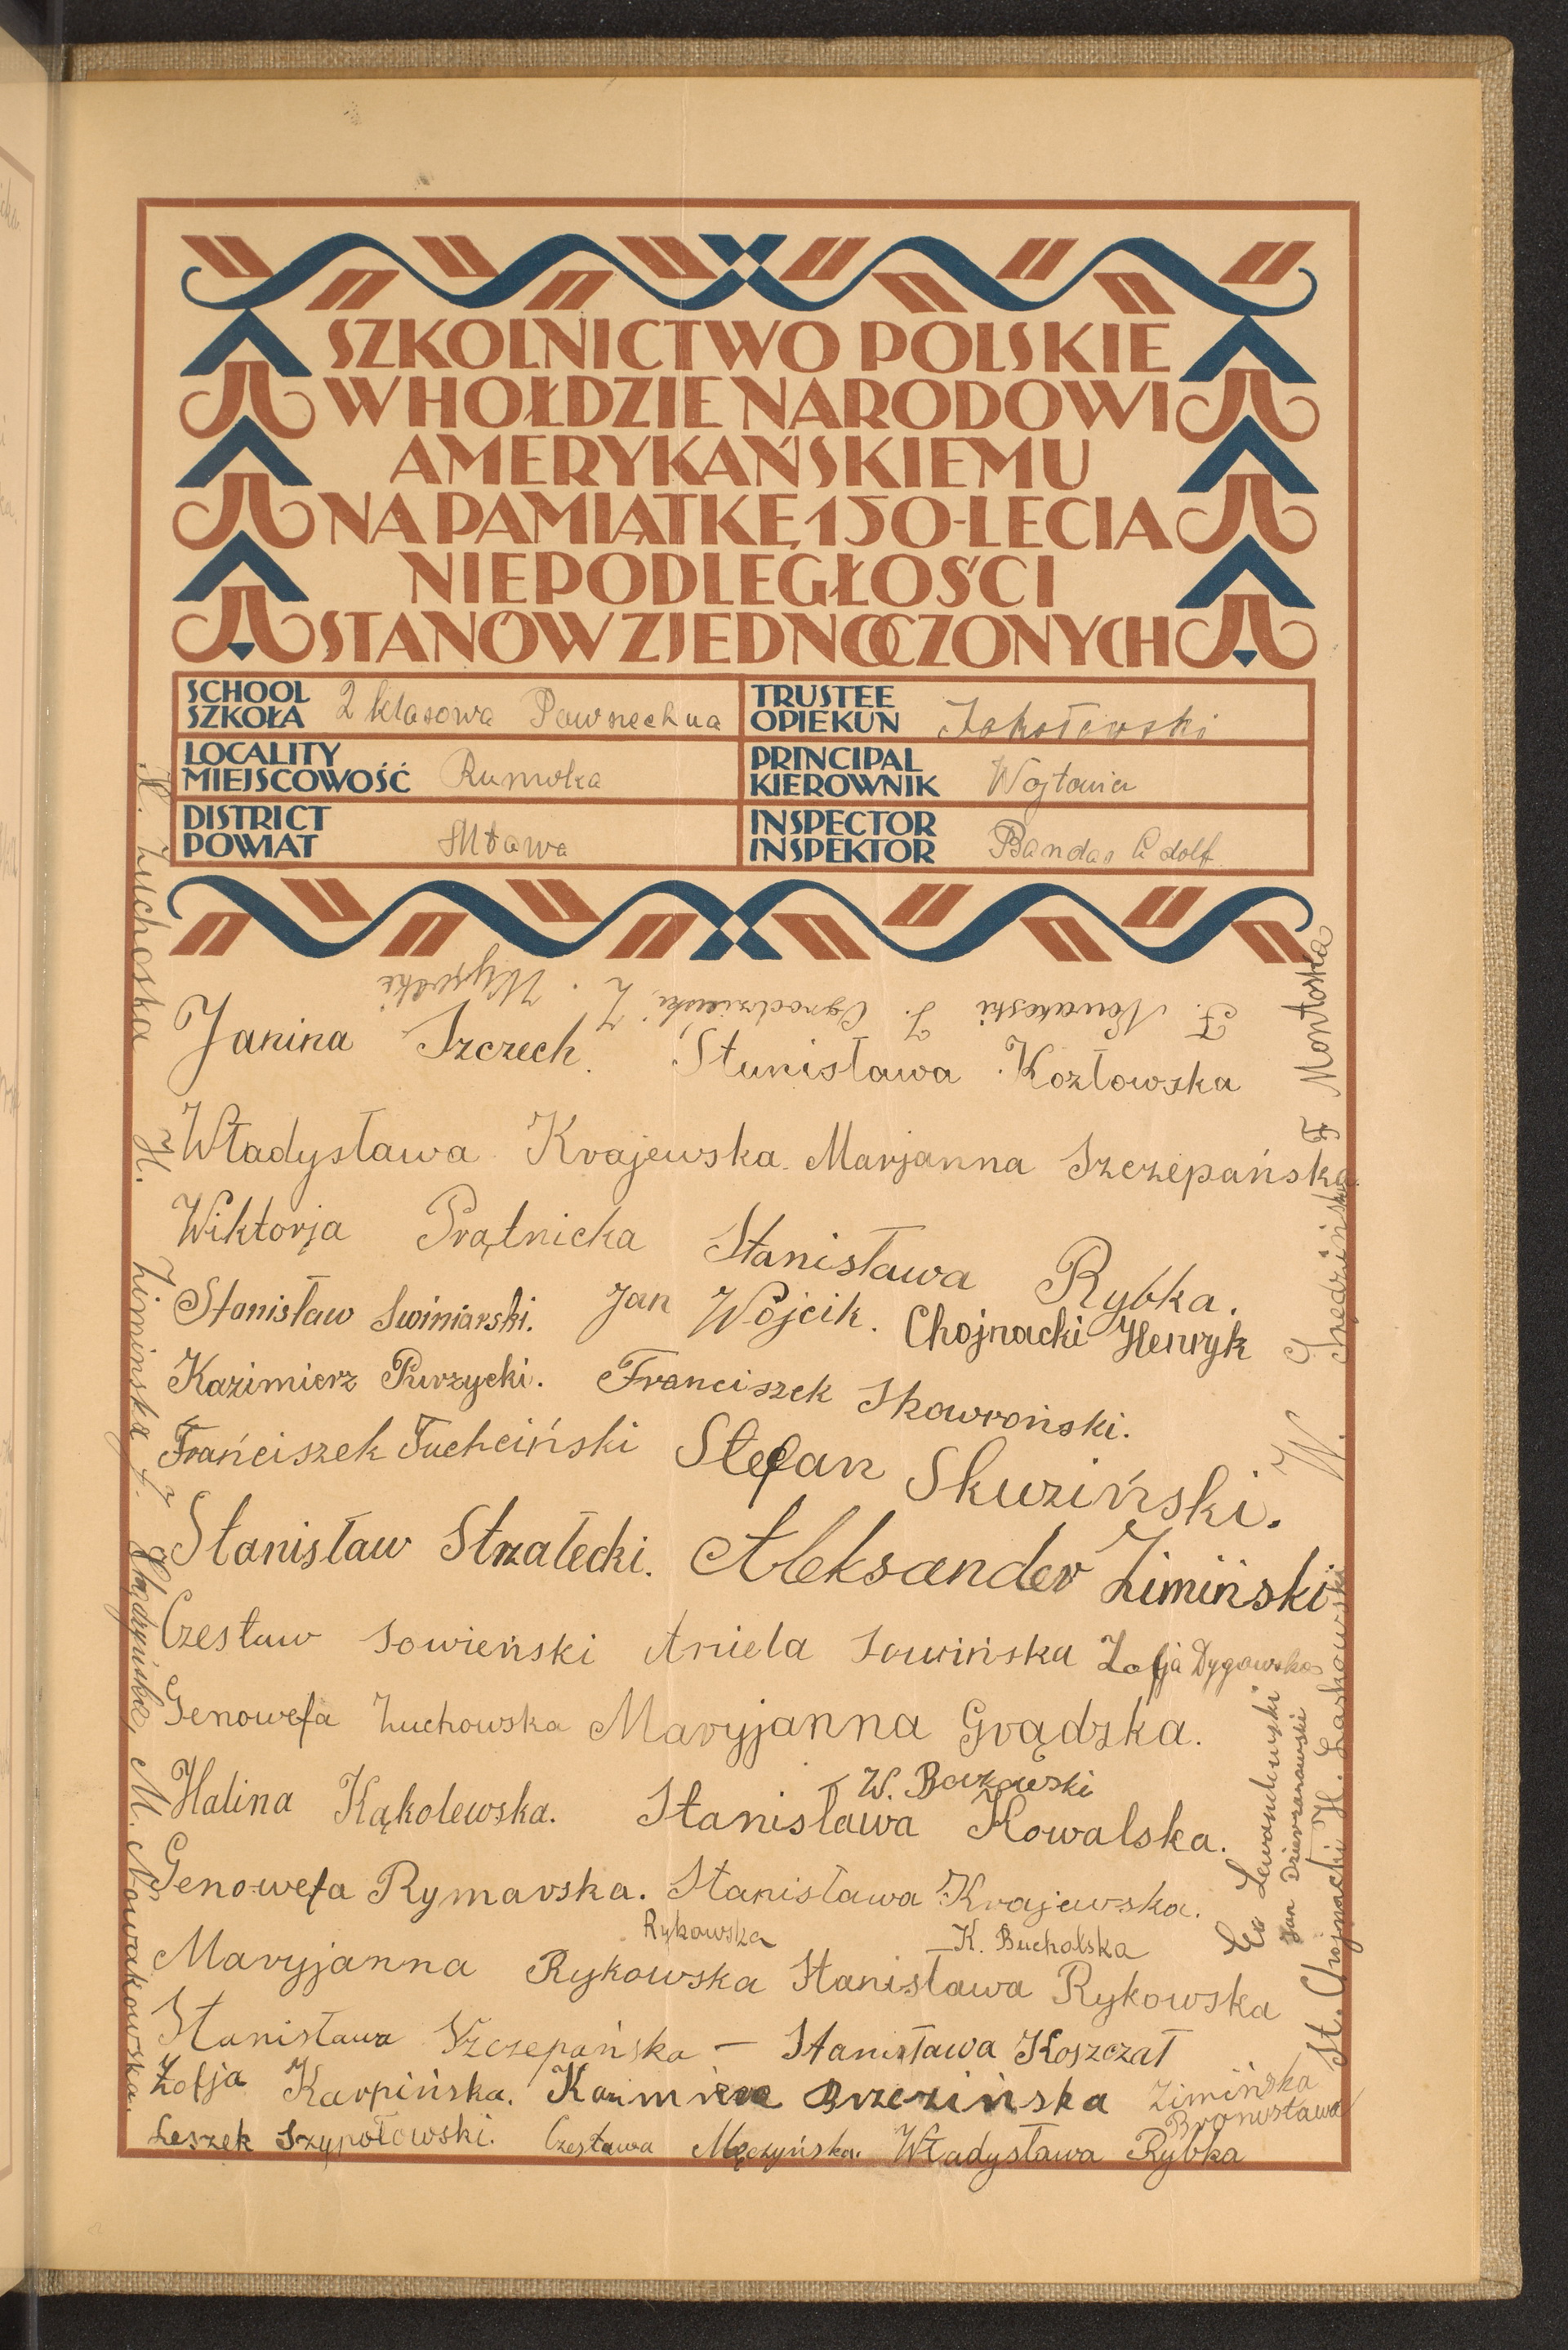 SZKOLNICTWO POLSKIE
W HOŁDZIE NARODOWI
AMERYKAŃSKIEMU
NA PAMIĄTKĘ 150-LECIA
NIEPODLEGŁOŚCI
STANÓW ZJEDNOCZONYCH
SCHOOL
SZKOŁA 2 klasowa Powszechna
TRUSTEE
OPIEKUN
LOCALITY
MIEJSCOWOŚĆ Rumoka
PRINCIPAL
KIEROWNIK
DISTRICT
POWIAT Mława
INSPECTOR
INSPEKTOR Bandas Adolf
F. Nowakoski J. Ogrodziński, Z.
Janina Szczech. Stanisława Kozłowska
Władysława Krajewska. Marjanna Szczepańska
Wiktorja Prątnicka Stanisława Rybka.
Stanisław Swiniarski. Jan Wójcik. Chojnacki Henryk
Kazimierz Purzycki. Franciszek Skowroński.
Frańciszek Tuchciński Stefan Skuziński.
Stanisław Strzałecki. Aleksander Zimiński
Czesław Sowieński Aniela Sowińska Zofja Dygowska
Genowefa Żuchowska Maryjanna Grądzka.
W. Bozowski
Halina Kąkolewska. Stanisława Kowalska.
Genowefa Rymarska. Stanisława Krajewska.
Rykowska K. Bucholska
Maryjanna Rykowska Stanisława Rykowska
Stanisława Szczepańska — Stanisława Koszczał
Zofja Karpińska. Kazimiera Brzezińska Zimińska
Bronisława
Leszek Szypołowski. Czesława Męczyńska. Władysława Rybka
K. Żuchoska
H. Zimińska
M. Nowakowska.
F Montoska
W.
Lewandewski
Jan Dzierzanowski
St. Chojnacki H. Laskowski